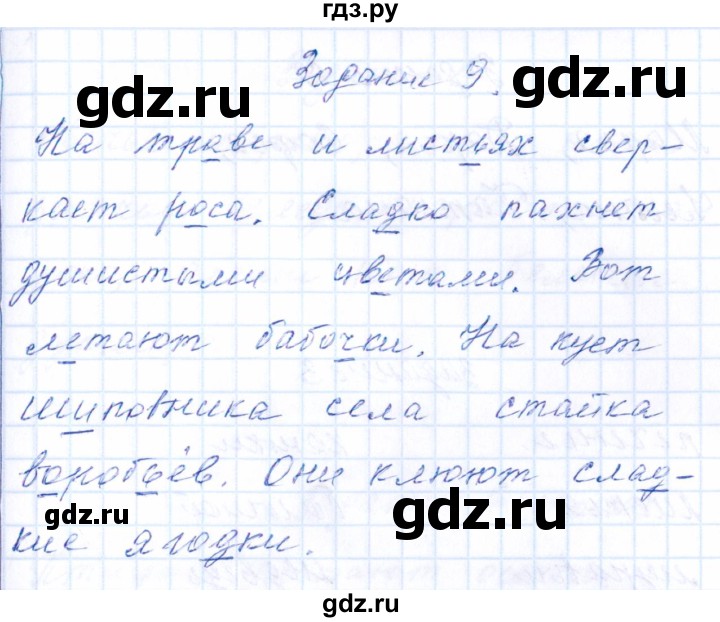 гдз.ру
Задание 9.
gdz.ru
gdz.ru
На траве и листьях свер-
кает роса. Сладко пахнет
душистыми цветами. Вот
летают бабочки. На куст
шиповника села стайка
воробьёв. Они клюют слад-
gdz.ru
gdz.ru
кие ягодки.
gdz.ru